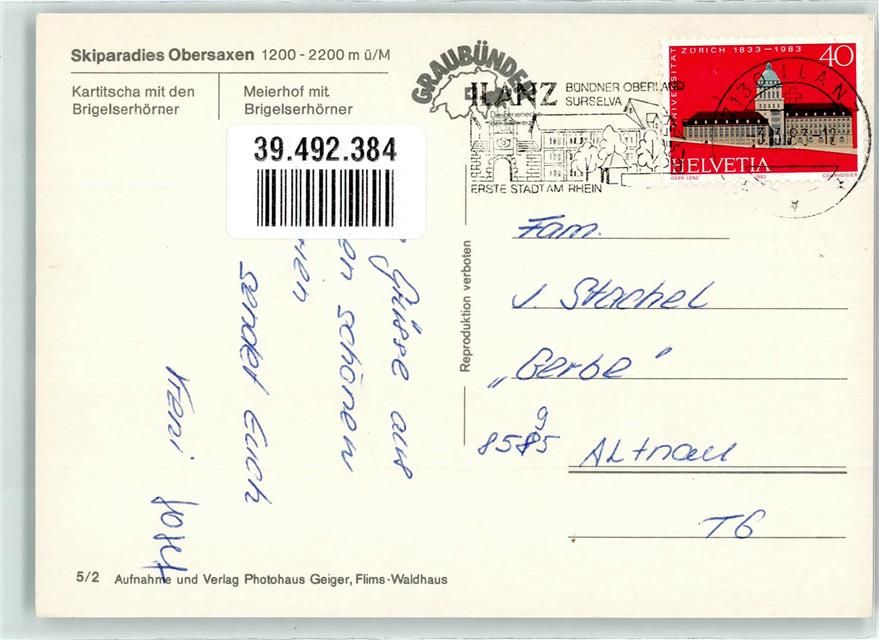 Skiparadies Obersaxen 1200 - 2200 m ü/M
Kartitscha mit den
Brigelserhörner
Meierhof mit
Brigelserhörner
39.492.384
GRAUBÜNDEN
ILANZ BÜNDNER OBERLAND
SURSELVA
ERSTE STADT AM RHEIN
UNIVERSITÄT ZÜRICH 1833-1983
40
HELVETIA
GEBR LENZ 1983 COURVOISIER
Grüsse aus
en schönen
sendet Euch
Reproduktion verboten
Fam.
J. Stachel
„Gerbe"
8585 9
Altnau
TG
5/2 Aufnahme und Verlag Photohaus Geiger, Flims-Waldhaus